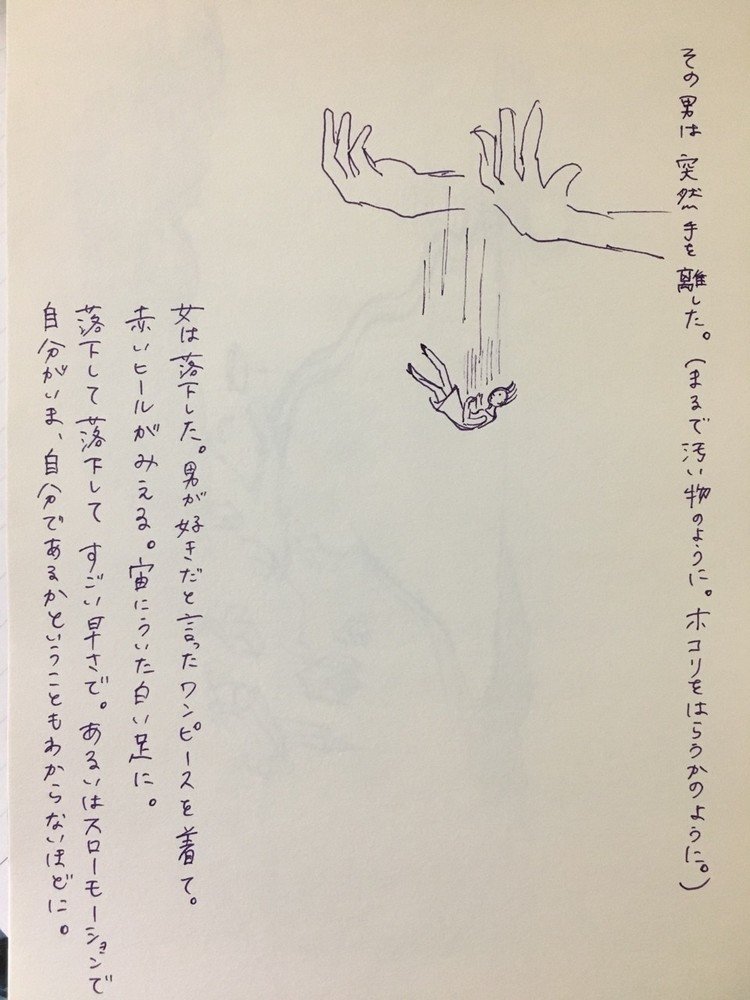 その男は突然手を離した。(まるで汚い物のように。ホコリをはらうかのように。)
女は落下した。男が好きだと言ったワンピースを着て。
赤いヒールがみえる。宙にういた白い足に。
落下して落下して すごい早さで。あるいはスローモーションで
自分がいま、自分であるかということもわからないほどに。